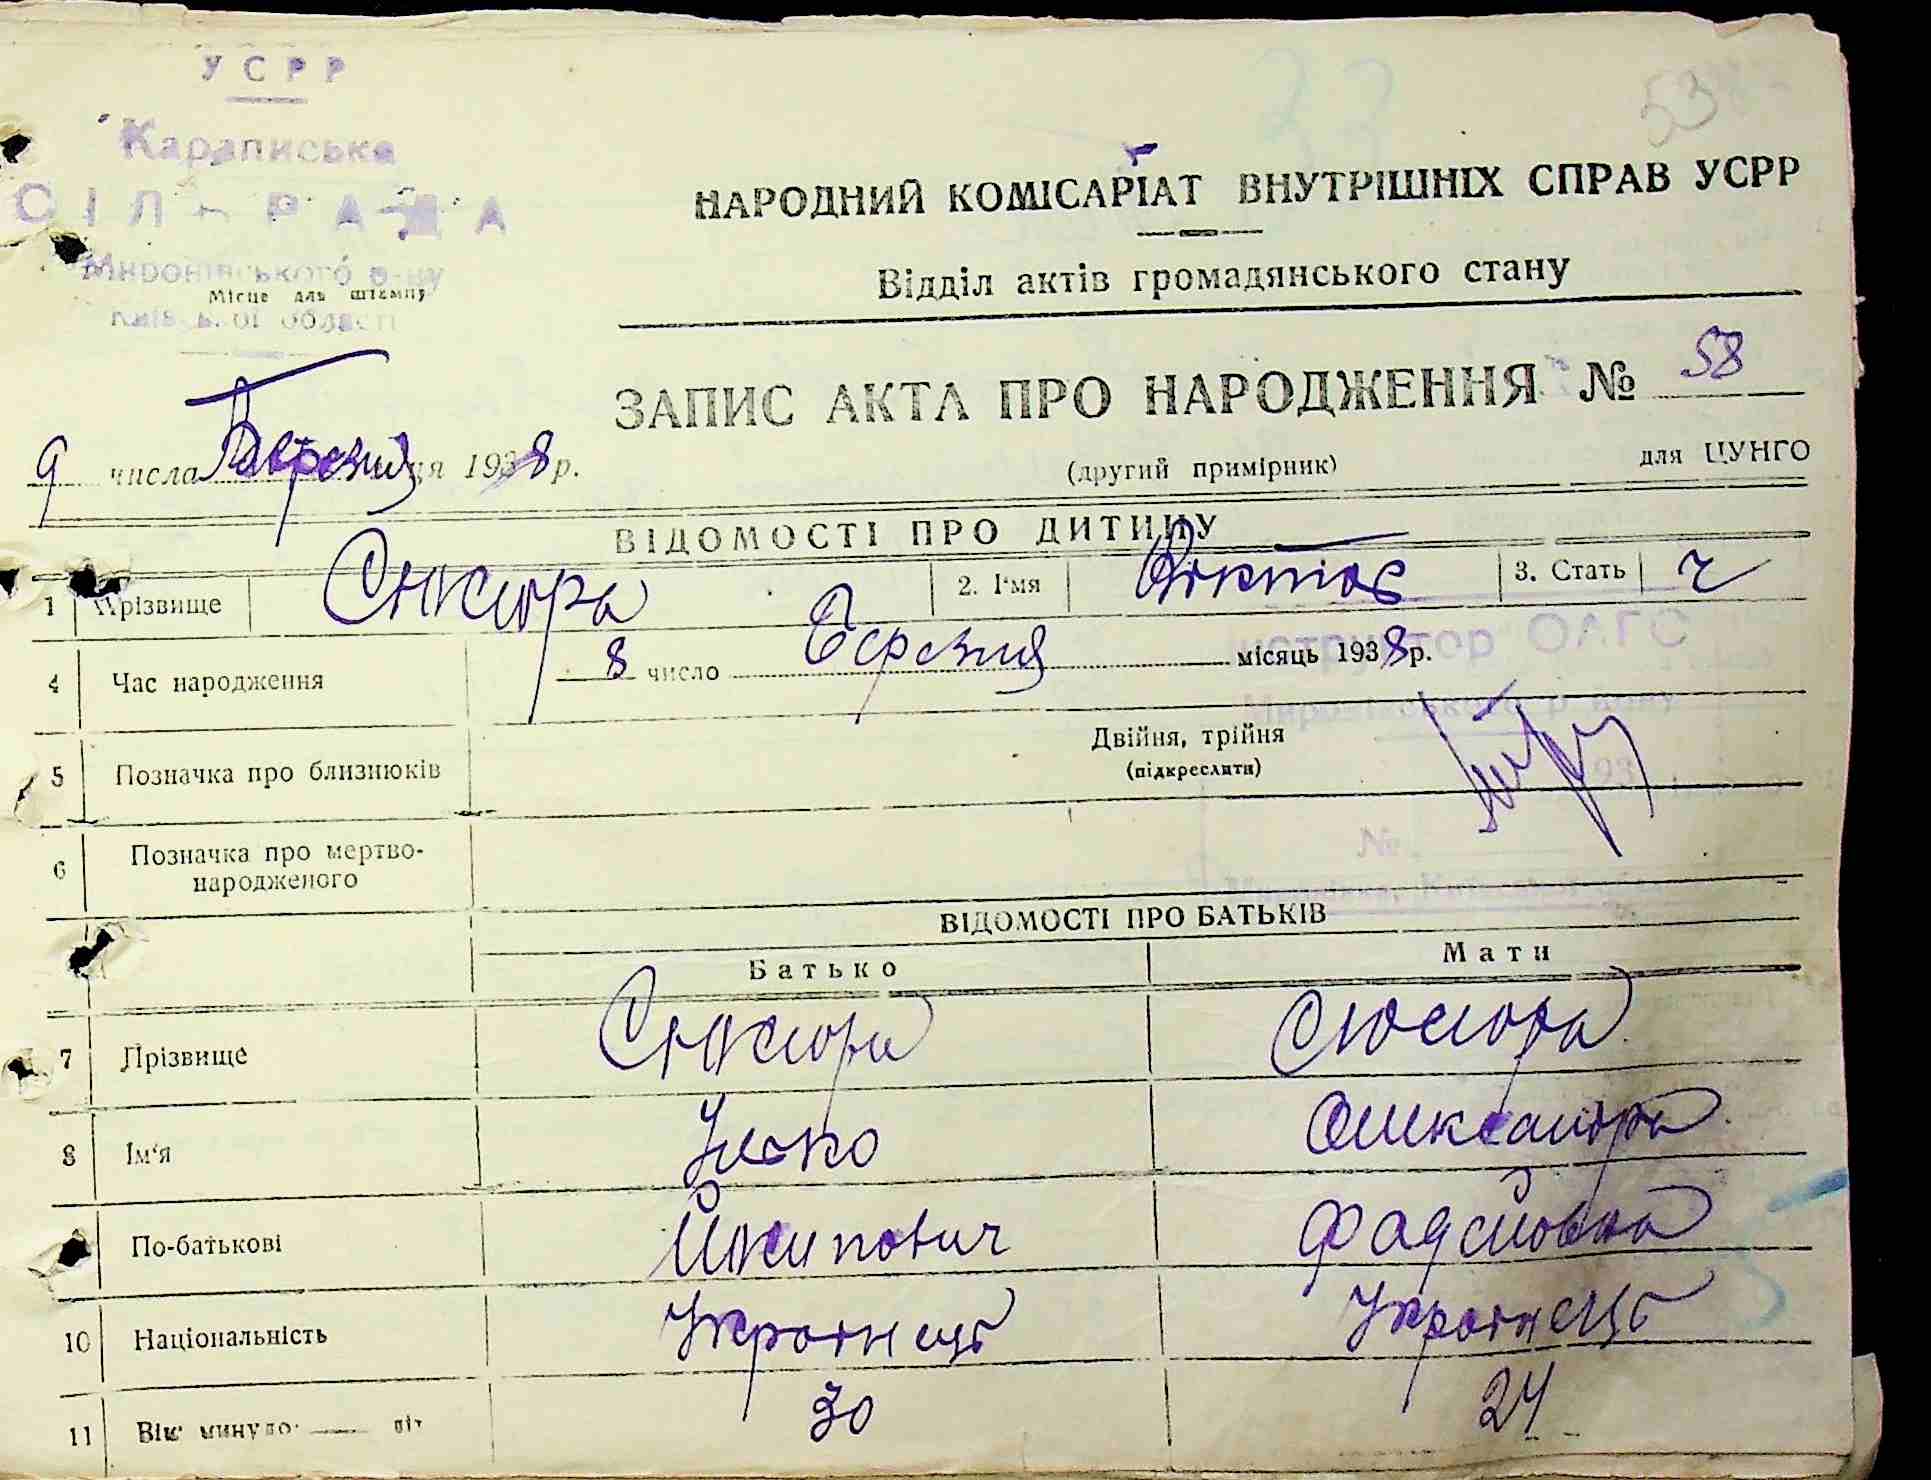 УСРР
Караписька
СІЛЬРАДА
Миронівського р-ну
Місце для штампу
Київської області
53
НАРОДНИЙ КОМІСАРІАТ ВНУТРІШНІХ СПРАВ УСРР
Відділ актів громадянського стану
ЗАПИС АКТА ПРО НАРОДЖЕННЯ № 58
9 числа Березня 1938 р.
(другий примірник)
для ЦУНГО
ВІДОМОСТІ ПРО ДИТИНУ
1 Прізвище Сюсюра 2. І'мя Віктор 3. Стать ч
4 Час народження 8 число Березня місяць 1938 р.
Інструктор ОАГС
Миронівського району
5 Позначка про близнюків Двійня, трійня
(підкреслити)
193
№
6 Позначка про мертво-
народженого
ВІДОМОСТІ ПРО БАТЬКІВ
Батько Мати
7 Прізвище Сюсюра Сюсюра
8 Ім'я Илько Олександра
По-батькові Йосипович Фадейовна
10 Національність Українець Українець
11 Вік минуло літ 30 24